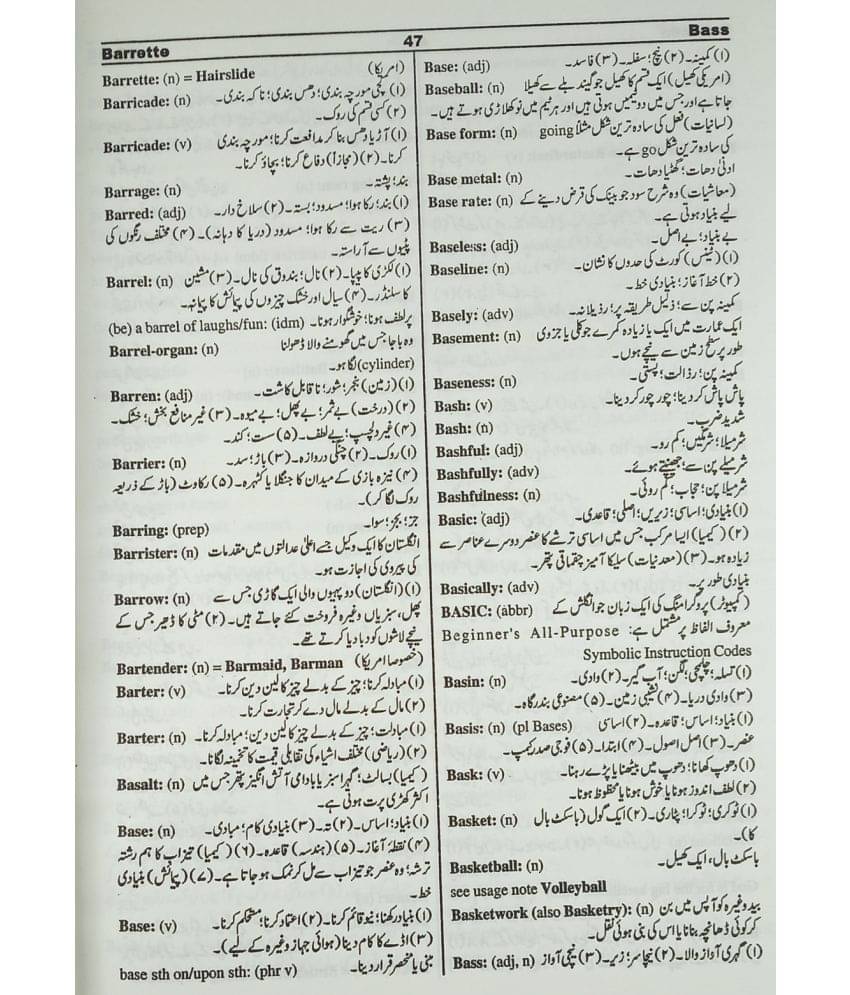 Barrette
47
Bass
Barrette: (n) = Hairslide (امریکا)
Barricade: (n) (۱) کچی مورچہ بندی؛ دھس بندی؛ ناکہ بندی۔
(۲) کسی قسم کی روک۔
Barricade: (v) (۱) آڑ یا دھس بنا کر مدافعت کرنا؛ مورچہ بندی
کرنا۔ (۲) (مجازاً) دفاع کرنا؛ بچاؤ کرنا۔
Barrage: (n) بند؛ پشتہ۔
Barred: (adj) (۱) بند؛ رکا ہوا؛ مسدود؛ بستہ۔ (۲) سلاخ دار۔
(۳) ریت سے رکا ہوا؛ مسدود (دریا کا دہانہ)۔ (۴) مختلف رنگوں کی
پٹیوں سے آراستہ۔
Barrel: (n) (۱) لکڑی کا پیپا۔ (۲) نال؛ بندوق کی نال۔ (۳) مشین
کا سلنڈر۔ (۴) سیال اور خشک چیزوں کی پیائش کا پیمانہ۔
(be) a barrel of laughs/fun: (idm) پر لطف ہونا؛ خوشگوار ہونا۔
Barrel-organ: (n) وہ باجا جس میں گھومنے والا ڈھولنا
(cylinder) لگا ہو۔
Barren: (adj) (۱) (زمین) بنجر؛ شور؛ ناقابل کاشت۔
(۲) (درخت) بے ثمر؛ بے پھل؛ بے میوہ۔ (۳) غیر منافع بخش؛ خشک۔
(۴) غیر دلچسپ؛ بے لطف۔ (۵) ست؛ کند۔
Barrier: (n) (۱) روک۔ (۲) چنگی دروازہ۔ (۳) باڑ؛ سد۔
(۴) نیزہ بازی کے میدان کا جنگلا یا کٹہرہ۔ (۵) رکاوٹ (باڑ کے ذریعہ
روک لگا کر)۔
Barring: (prep) جز؛ بجز؛ سوا۔
Barrister: (n) انگلستان کا ایک وکیل جسے اعلیٰ عدالتوں میں مقدمات
کی پیروی کی اجازت ہو۔
Barrow: (n) (۱) (انگلستان) دو پہیوں والی ایک گاڑی جس سے
پھل، سبزیاں وغیرہ فروخت کئے جاتے ہیں۔ (۲) مٹی کا ڈھیر جس کے
نیچے لاشوں کو دبا دیا کرتے تھے۔
Bartender: (n) = Barmaid, Barman (خصوصاً امریکا)
Barter: (v) (۱) مبادلہ کرنا؛ چیز کے بدلے چیز کا لین دین کرنا۔
(۲) مال کے بدلے مال دے کر تجارت کرنا۔
Barter: (n) (۱) مبادلت؛ چیز کے بدلے چیز کا لین دین؛ مبادلہ کرنا۔
(۲) (ریاضی) مختلف اشیاء کی تقابلی قیمت کا تخمینہ لگانا۔
Basalt: (n) (کیمیا) بسالٹ؛ گہرا سبز یا بادامی آتش انگیز پتھر جس میں
اکثر کھڑی پرت ہوتی ہے۔
Base: (n) (۱) بنیاد؛ اساس۔ (۲) تہ۔ (۳) بنیادی کام؛ مبادی۔
(۴) نقطۂ آغاز۔ (۵) (ہندسہ) قاعدہ۔ (۶) (کیمیا) تیزاب کا ہم رشتہ
ترشہ؛ وہ عنصر جو تیزاب سے مل کر نمک ہو جاتا ہے۔ (۷) (پیائش) بنیادی
خط۔
Base: (v) (۱) بنیاد رکھنا؛ نیو قائم کرنا۔ (۲) اعتماد کرنا؛ مستحکم کرنا۔
(۳) اڈے کا کام دینا (ہوائی جہاز وغیرہ کے لیے)۔
base sth on/upon sth: (phr v) مبنی یا منحصر قرار دینا۔
Base: (adj) (۱) کمینہ۔ (۲) نیچ؛ سفلہ۔ (۳) فاسد۔
Baseball: (n) (امریکی کھیل) ایک قسم کا کھیل جو گیند بلے سے کھیلا
جاتا ہے اور جس میں دو ٹیمیں ہوتی ہیں اور ہر ٹیم میں نو کھلاڑی ہوتے ہیں۔
Base form: (n) (لسانیات) فعل کی سادہ ترین شکل مثلاً going
کی سادہ ترین شکل go ہے۔
Base metal: (n) ادنیٰ دھات؛ گھٹیا دھات۔
Base rate: (n) (معاشیات) وہ شرح سود جو بینک کی قرض دینے کے
لیے بنیاد ہوتی ہے۔
Baseless: (adj) بے بنیاد؛ بے اصل۔
Baseline: (n) (۱) (ٹینس) کورٹ کی حدوں کا نشان۔
(۲) خط آغاز؛ بنیادی خط۔
Basely: (adv) کمینہ پن سے؛ ذلیل طریقہ پر؛ رذیلانہ۔
Basement: (n) ایک عمارت میں ایک یا زیادہ کمرے جو کلی یا جزوی
طور پر سطح زمین سے نیچے ہوں۔
Baseness: (n) کمینہ پن؛ رذالت؛ پستی۔
Bash: (v) پاش پاش کر دینا؛ چور چور کر دینا۔
Bash: (n) شدید ضرب۔
Bashful: (adj) شرمیلا؛ شرمگیں؛ کم رو۔
Bashfully: (adv) شرمیلے پن سے؛ جھینپتے ہوئے۔
Bashfulness: (n) شرمیلا پن؛ حجاب؛ کم روئی۔
Basic: (adj) (۱) بنیادی؛ اساسی؛ زیریں؛ اصلی؛ قاعدی۔
(۲) (کیمیا) ایسا مرکب جس میں اساسی ترشے کا عنصر دوسرے عناصر سے
زیادہ ہو۔ (۳) (معدنیات) سلیکا آمیز چقماتی پتھر۔
Basically: (adv) بنیادی طور پر۔
BASIC: (abbr) (کمپیوٹر) پروگرامنگ کی ایک زبان جو انگلش کے
معروف الفاظ پر مشتمل ہے: Beginner's All-Purpose
Symbolic Instruction Codes
Basin: (n) (۱) تسلہ؛ چلمچی؛ لگن؛ آب گیر۔ (۲) وادی۔
(۳) وادی دریا۔ (۴) نشیبی زمین۔ (۵) مصنوعی بندرگاہ۔
Basis: (n) (pl Bases) (۱) بنیاد؛ اساس؛ قاعدہ۔ (۲) اساسی
عنصر۔ (۳) اصل اصول۔ (۴) ابتدا۔ (۵) فوجی صدر کیمپ۔
Bask: (v) (۱) دھوپ کھانا؛ دھوپ میں بیٹھنا یا پڑے رہنا۔
(۲) لطف اندوز ہونا یا خوش ہونا یا محظوظ ہونا۔
Basket: (n) (۱) ٹوکری؛ ٹوکرا؛ پٹاری۔ (۲) ایک گول (باسکٹ بال
کا)۔
Basketball: (n) باسکٹ بال، ایک کھیل۔
see usage note Volleyball
Basketwork (also Basketry): (n) بید وغیرہ کو آپس میں بن
کر کوئی ڈھانچہ بنانا یا اس کی بنی ہوئی نقل۔
Bass: (adj, n) (۱) گہری آواز والا۔ (۲) نیچا سر؛ زیر۔ (۳) نیچی آواز